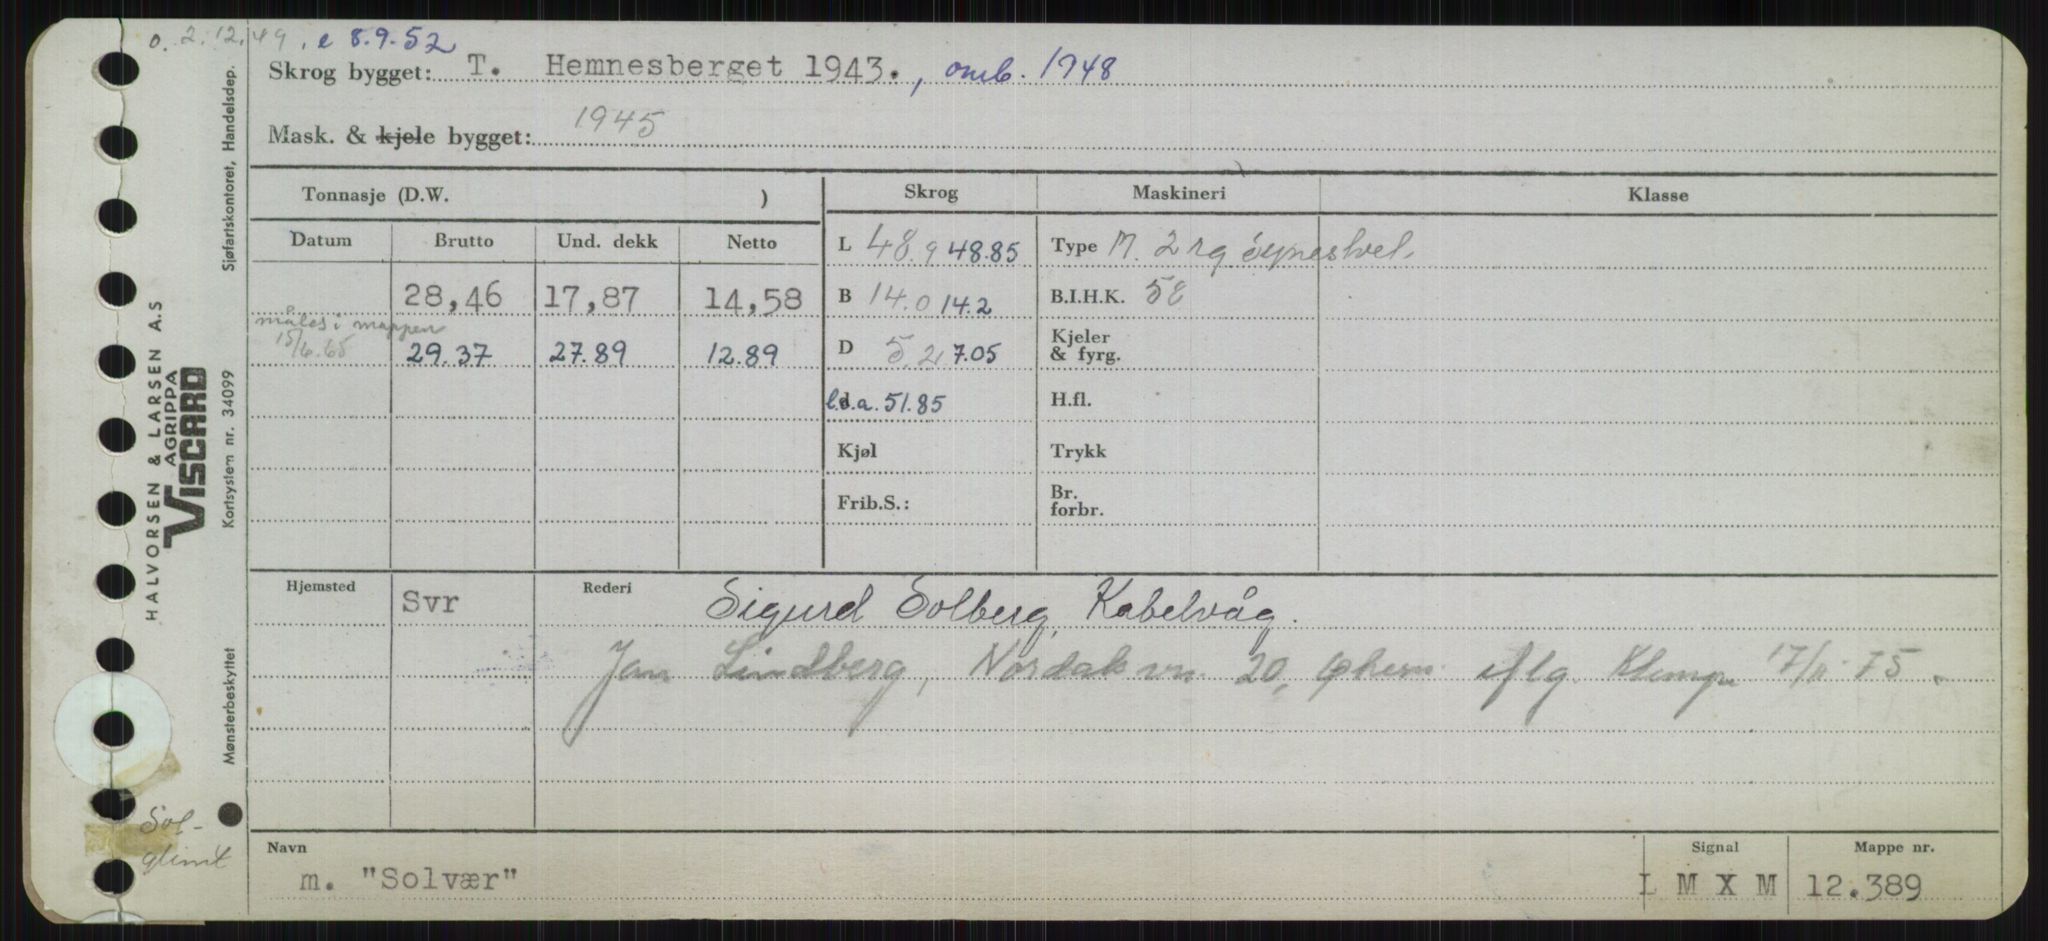 o. 2.12.49, e 8.9.52
Skrog bygget: T. Hemnesberget 1943., omb. 1948
Mask. & kjele bygget: 1945
Tonnasje (D.W. ) Skrog Maskineri Klasse
Datum Brutto Und. dekk Netto
L 48.9 48.85 Type M. 2
28,46 17,87 14,58 B 14.0 14.2 B.I.H.K. 58
måles i mappen
15/6.65 29.37 27.89 12.89 D 5.2 7.05 Kjeler & fyrg.
l.o.a. 51.85 H.fl.
Kjøl Trykk
Frib.S.: Br. forbr.
Hjemsted Svr Rederi Sigurd Solberg, Kabelvåg.
Jan Lindberg, 20, iflg. 75.
Navn Signal Mappe nr.
m. "Solvær" L M X M 12.389
Sol-
glimt
HALVORSEN & LARSEN A.S
AGRIPPA
VISCARD
Sjøfartskontoret, Handelsdep.
Kortsystem nr. 34099
Mønsterbeskyttet